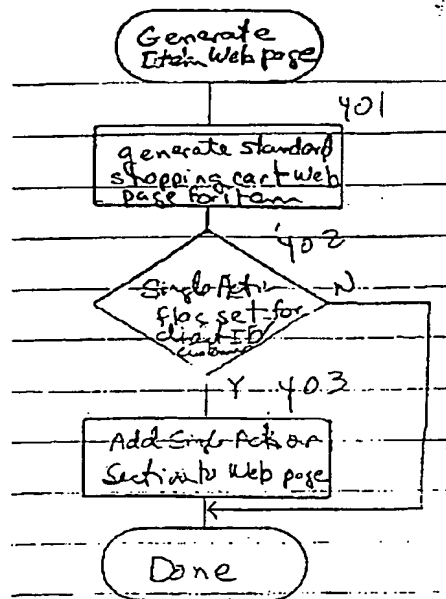 Generate
Item Web page
401
generate standard
shopping cart Web
page for item
402
Single-Action
flag set for
client ID
customer
N
Y 403
Add Single-Action
Section to Web page
Done